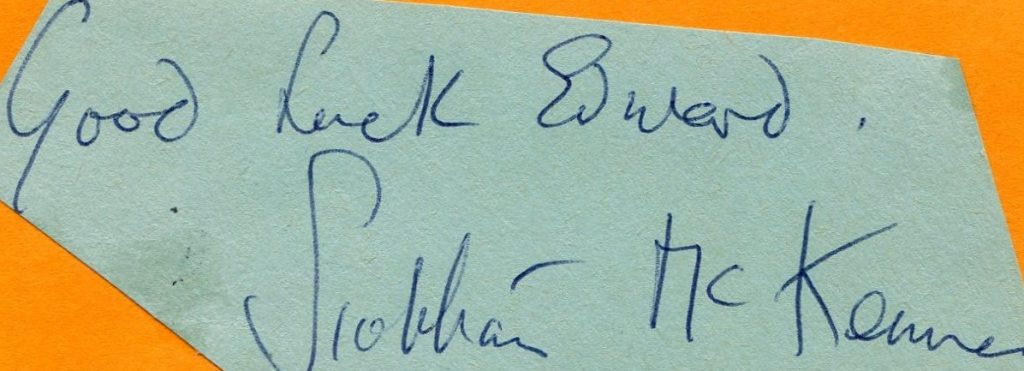 Good Luck Edward.
Siobhán McKenna